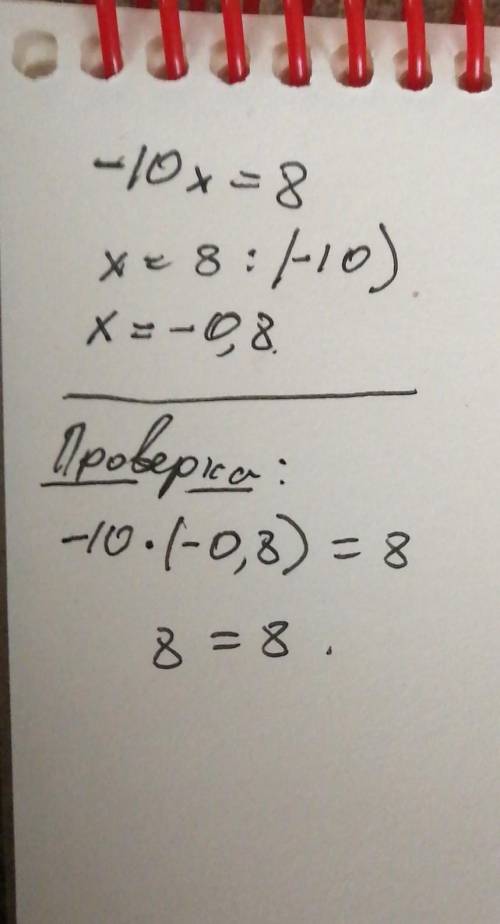 -10x = 8
x = 8 : (-10)
x = -0,8.
Проверка:
-10·(-0,8) = 8
8 = 8 .